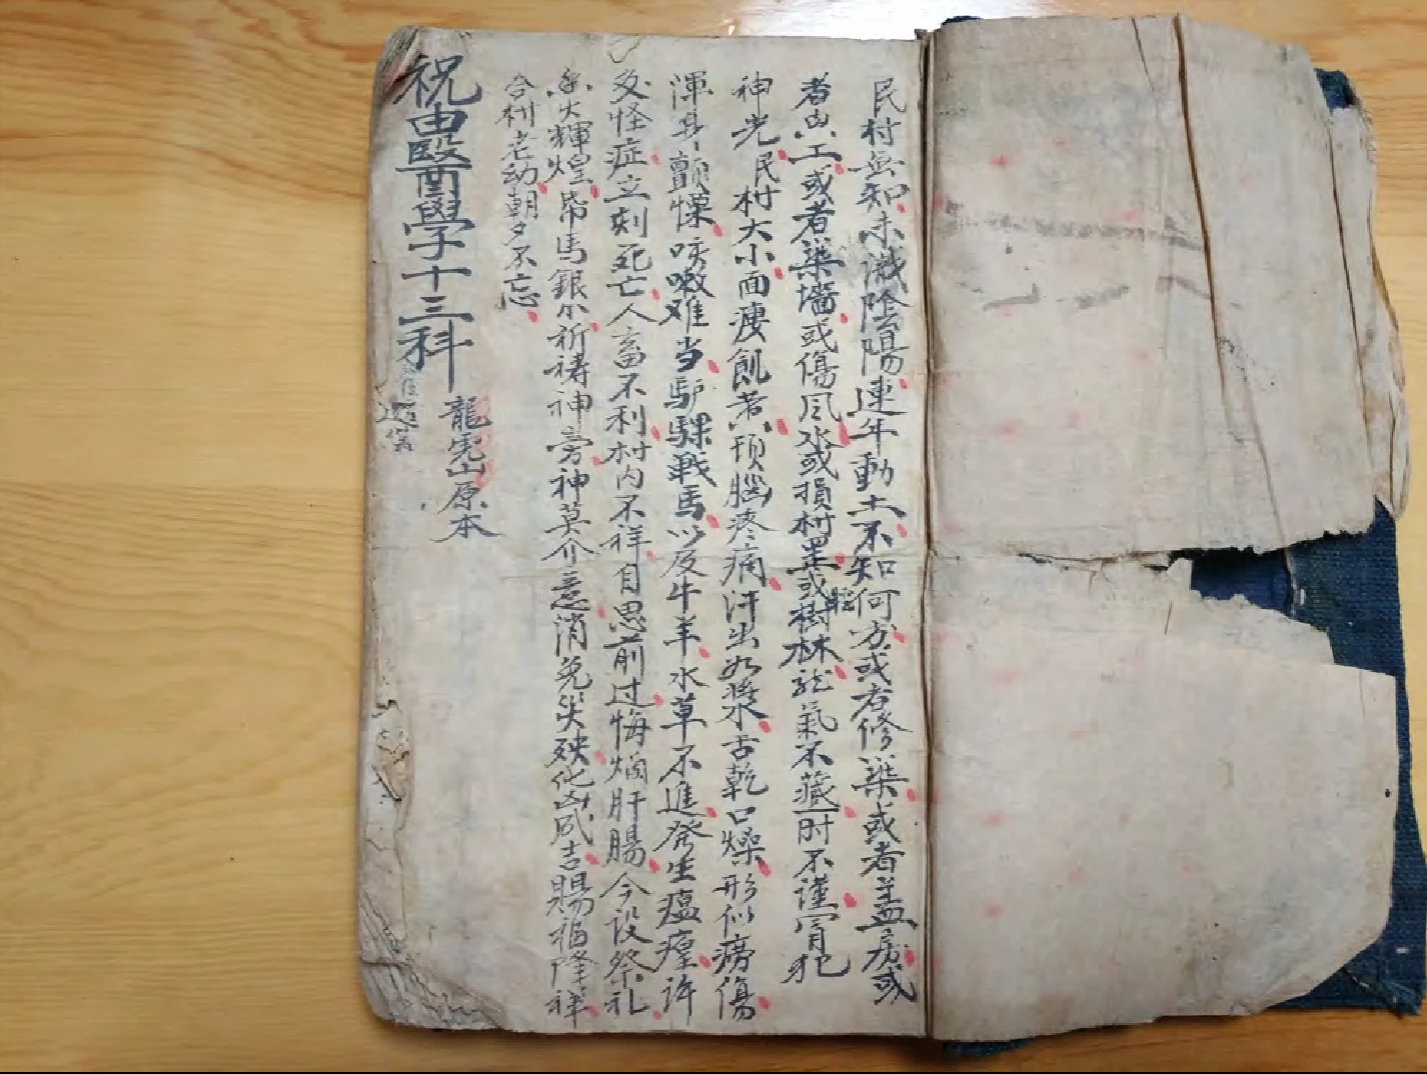 民村無知未識陰陽連年動土不知何方或者修築或者盖房或
者出工或者築墻或傷风水或損村罡或樹林龙氣不藏一时不謹冒犯
神光民村大小面瘦飢羔頂腦疼痛汗出如漿水舌乾口燥形似痨傷
渾身顫慄咳嗽难当驴騾戰馬以及牛羊水草不進發生瘟瘴许
多怪症立刻死亡人畜不利村内不祥自思前过悔煳肝腸今设祭礼
香火輝煌帋馬銀尔祈祷神旁神莫介意消免災殃化凶成吉賜福降祥
合村老幼朝夕不忘
祝由醫學十三科
龍虎山原本